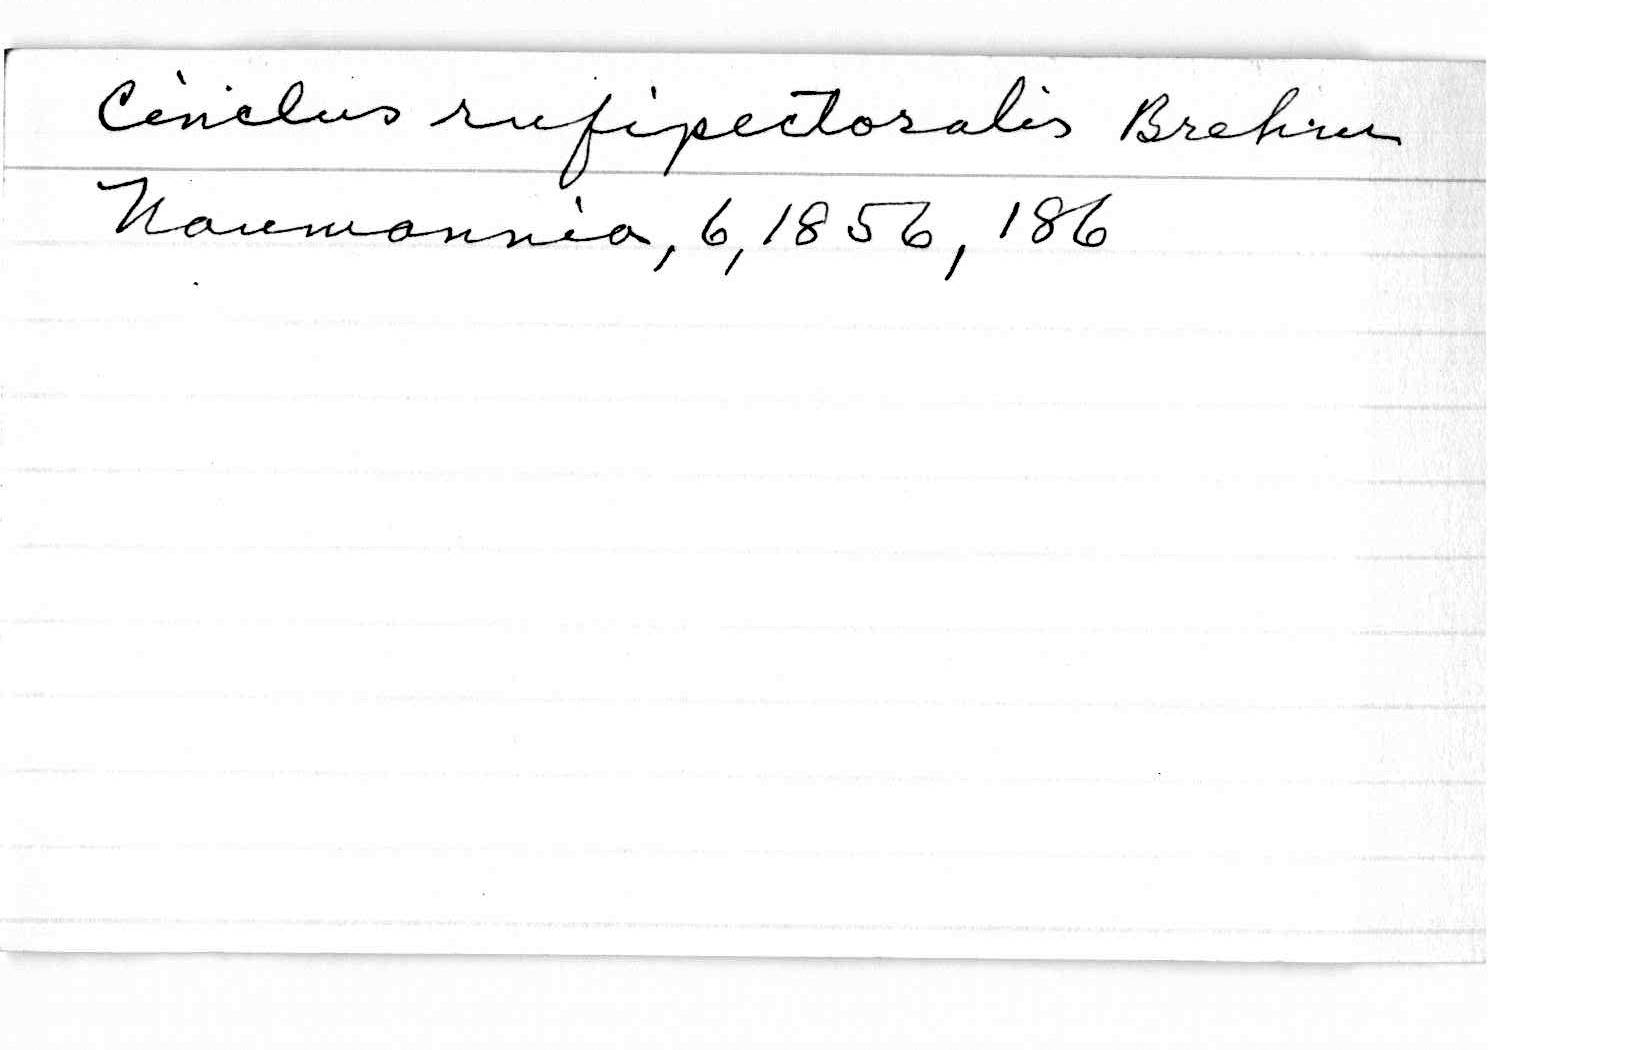 Cinclus rufipectoralis Brehm
Naumannia, 6, 1856, 186